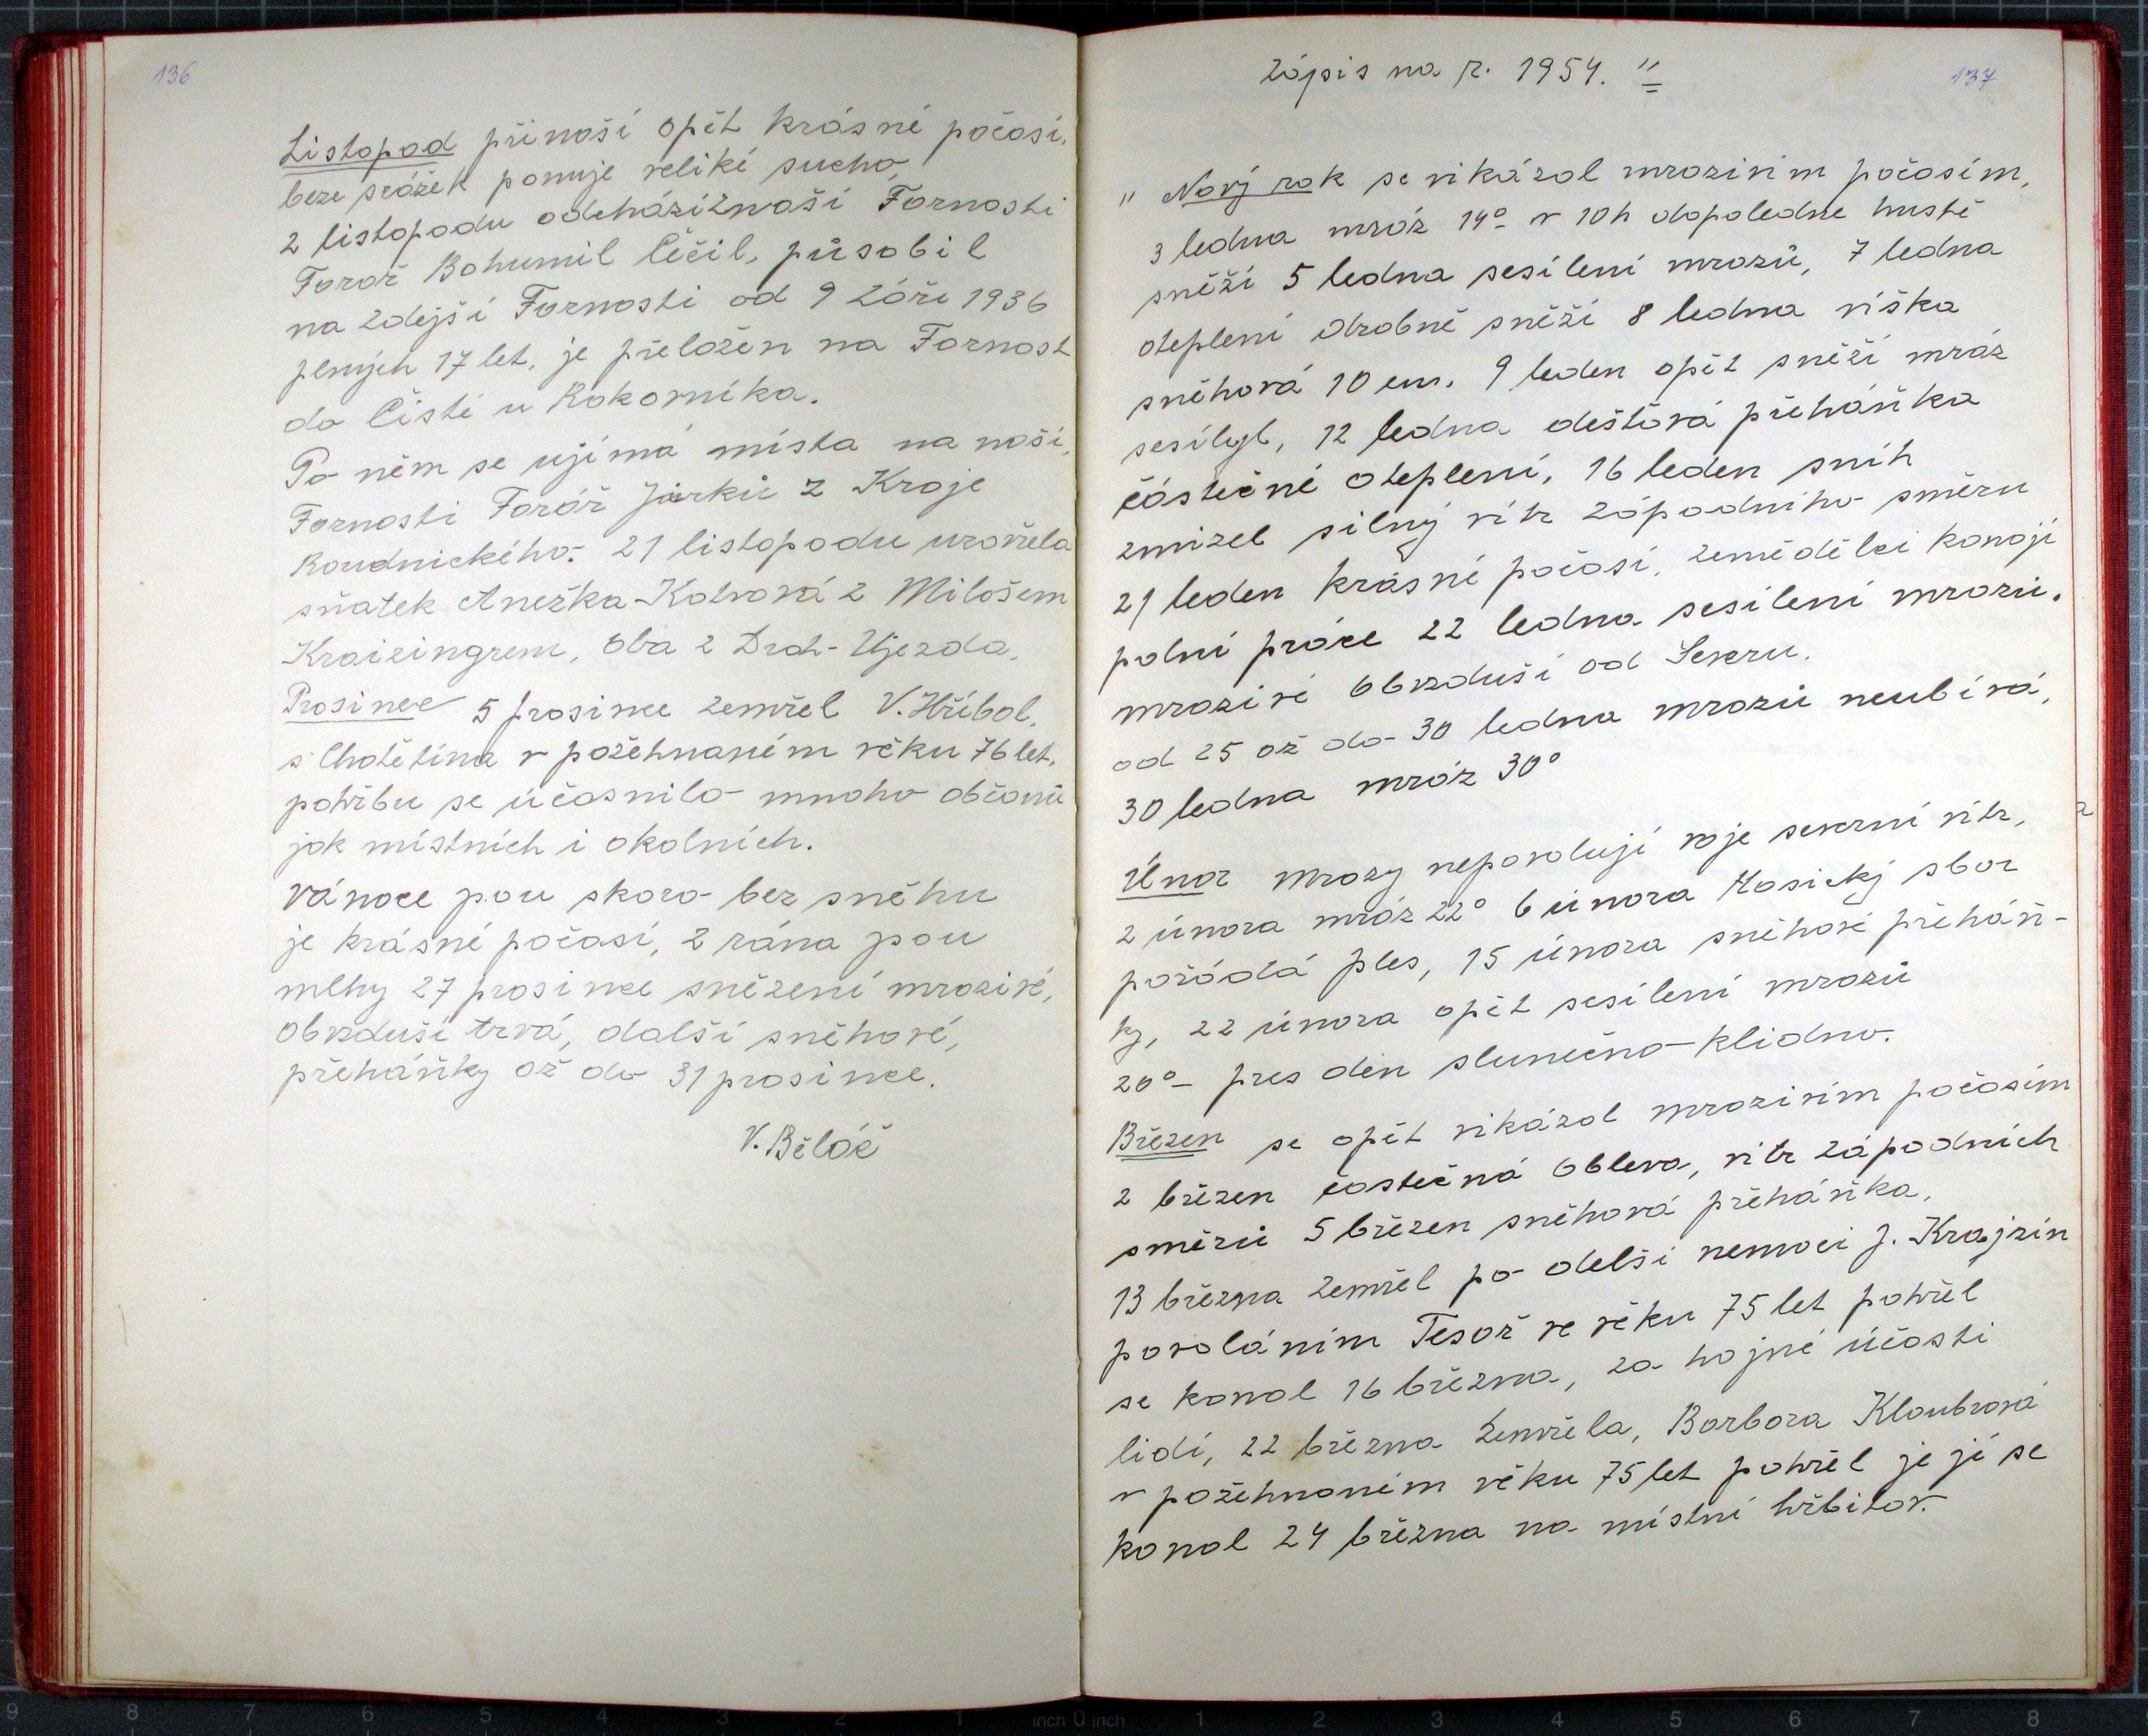 136
Listopad přinaší opět krásné počasí,
beze srážek panuje veliké sucho,
2 listopadu odchází z naší Farnosti
Farař Bohumil Čéčil, působil
na zdejší Farnosti od 9 Záři 1936
plných 17 let, je přeložen na Farnost
do Čisté u Rakovníka.
Po něm se ujímá místa na naší,
Farnosti Farář Jirků z Kraje
Roudnického. 21 listopadu uzavřela
sňatek Anežka-Kotvová z Milošem
Kraizingrem, Oba z Drah-Ujezda,
Prosinec 5 prosince zemřel V. Hříbal,
s Chotětína v požehnaném věku 76 let,
pohřbu se účasnilo mnoho občanů
jak místních i okolních.
Vánoce jsou skoro bez sněhu
je krásné počasí, z rána jsou
mlhy 27 prosince sněžení mrazivé,
Obvzduší trvá, další sněhové,
přeháňky až do 31 prosince.
V. Běláč
Zápis na r. 1954. "
137
" Nový rok se vikázal mrazivím počasím,
3 ledna mráz 14° v 10h dopoledne hustě
sněží 5 ledna sesílení mrazů, 7 ledna
oteplení drobně sněží 8 ledna víška
sněhová 10 cm. 9 leden opět sněží mráz
sesílyl, 12 ledna dešťová přeháňka
částečné oteplení, 16 leden sníh
zmizel silný vítr západního směru
21 leden krásné počasí, zemědělci konají
polní práce 22 ledna sesílení mrazů.
mrazivé obvzduší od Severu.
od 25 až do 30 ledna mrazů neubívá,
30 ledna mráz 30°
Únor mrazy nepovolují vaje severní vítr,
2 února mráz 22° 6 února Hasický sbor
pořádá ples, 15 února sněhové přeháň-
ky, 22 února opět sesílení mrazů
20° pres den slunečno-klidno.
Březen se opět vikázal mrazivím počasím
2 březen častečná obleva, vítr západních
směrů 5 březen sněhová přeháňka,
13 března zemřel po delší nemoci J. Krajzin
povoláním Tesař ve věku 75 let pohřel
se konal 16 března, za hojné účasti
lidí, 22 března zemřela, Barbora Kloubrová
v požehnaném věku 75 let pohřel je jí se
konal 24 března na místní hřbitov.